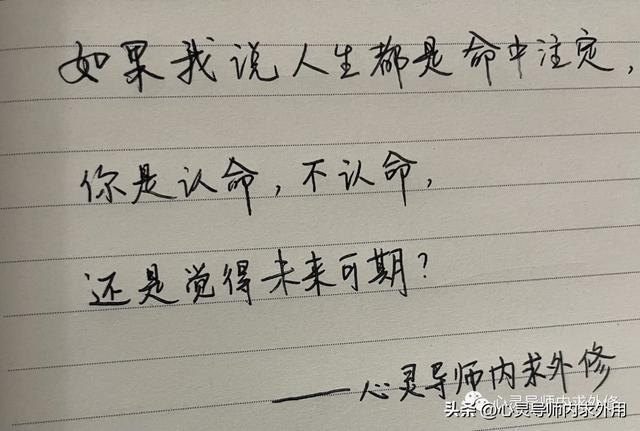 如果我说人生都是命中注定，
你是认命，不认命，
还是觉得未来可期？
——心灵导师内求外修
心灵导师内求外修
头条@心灵导师内求外用